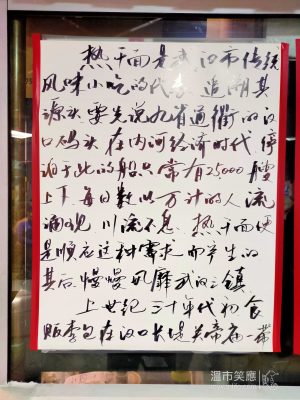 热干面是武汉市传统
风味小吃的代表，追溯其
源头要先说九省通衢的汉
口码头，在内河经济时代，停
泊于此的船只常有25000艘
上下，每日数以万计的人流
涌现，川流不息，热干面便
是顺应这种需求而产生的
其后慢慢风靡武汉三镇
上世纪三十年代初，食
贩李包在汉口长堤关帝庙一带
溫市笑應